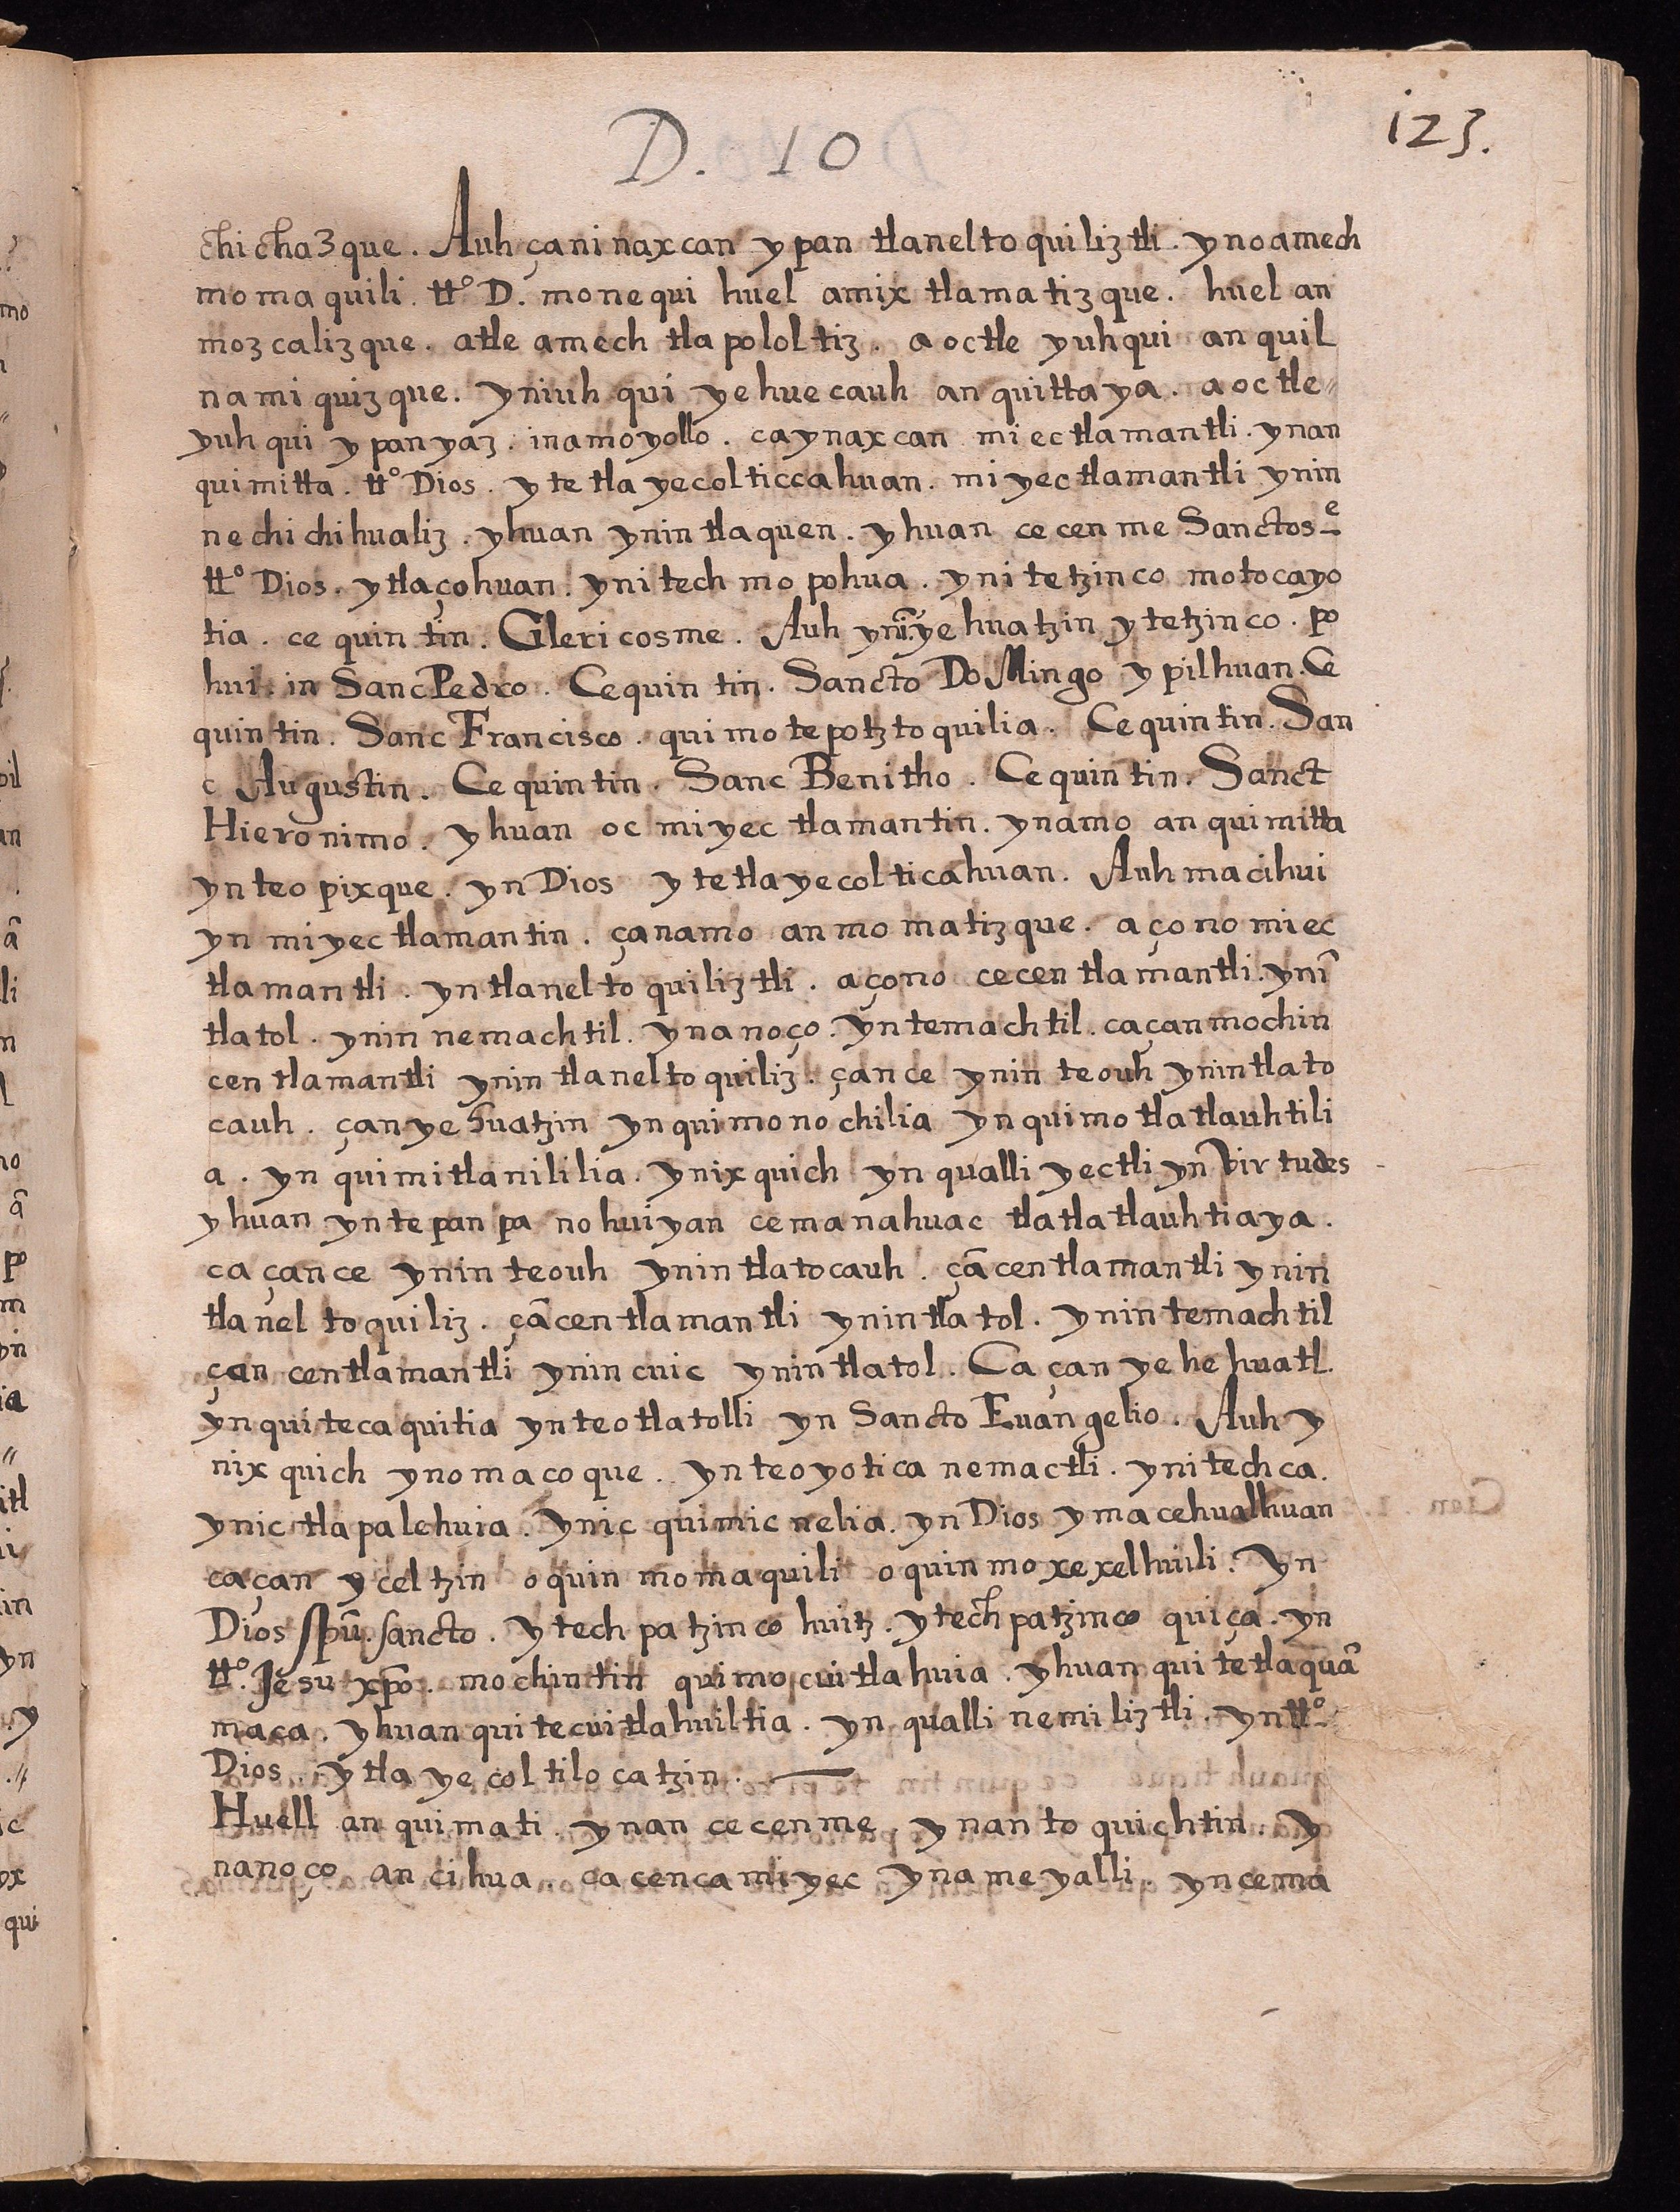 D. 10
123.
chichazque. Auh çaninaxcan ypan tlaneltoquiliztli. ynoamech
momaquili. tt.º D. monequi huel amix tlamatizque. huel an
mozcalizque. atle amech tlapololtiz. aoctle yuhqui anquil
namiquizque. yniuhqui yehuecauh anquittaya. aoctle〃
yuhqui ypanyaz. inamoyollo. caynaxcan miectlamantli. ynan
quimitta. tt.º Dios. ytetlayecolticcahuan. miyectlamantli ynin
nechichihualiz. yhuan ynintlaquen. yhuan cecenme Sanctosᵉ
tt.º Dios. ytlaçohuan. ynitech mopohua. ynitetzinco motocayo
tia. cequintin. Glericosme. Auh ynīyehuatzin ytetzinco. po
hui. in SancPedro. Cequintin. Sancto DoMingo ypilhuan. Ce
quintin. Sanc Francisco. quimotepotztoquilia. Cequintin. San
c Augustin. Cequintin. Sanc Benitho. Cequintin. Sanct
Hieronimo. yhuan oc miyectlamantin. ynamo anquimitta
ynteopixque. yn Dios ytetlayecolticahuan. Auh macihui
yn miyectlamantin. çanamo anmomatizque. açono miec
tlamantli. yntlaneltoquiliztli. açono cecentlamantli. ynī
tlatol. ynin nemachtil. ynanoço. yntemachtil. caçanmochin
centlamantli ynin tlaneltoquiliz. çance ynin teouh ynintlato
cauh. çanyehuatzin ynquimonochilia ynquimotlatlauhtili
a. yn quimitlanililia. ynixquich yn qualli yectli yn virtudes
yhuan yntepanpa nohuiyan cemanahuac tlatlatlauhtiaya.
ca çance ynin teouh ynin tlatocauh. çācentlamantli ynin
tlaneltoquiliz. çācentlamantli ynintlatol. ynintemachtil
çan centlamantli ynincuic ynintlatol. Ca çan yehehuatl.
ynquitecaquitia ynteotlatolli yn Sancto Euangelio. Auh y
nixquich ynomacoque. ynteoyotica nemactli. ynitechca.
ynic tlapalehuia. ynic quimicnelia. yn Dios ymacehualhuan
caçan yceltzin oquinmomaquili oquinmoxexelhuili. Yn
Dios spū. sancto. ytechpatzinco huitz. ytechpatzinco quiça. yn
tt.º Jesu xp̄o. mochintin quimocuitlahuia. yhuan quitetlaquā
maca. yhuan quitecuitlahuiltia. yn qualli nemiliztli. yntt.º
Dios. ytlayecoltilocatzin.
Huell anquimati. ynan cecenme. ynan toquichtin. y
nanoço ancihua. cacencamiyec ynameyalli. yncema